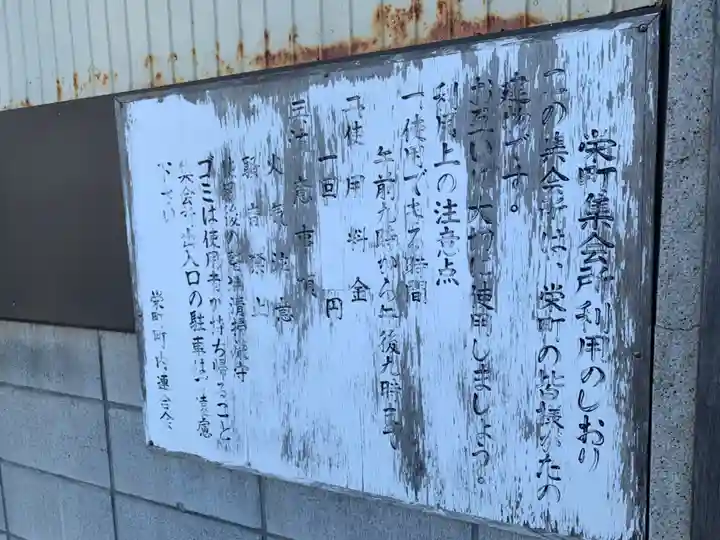 栄町集会所利用のしおり
この集会所は、栄町の皆様方の
建物です。
お互いに大切に使用しましょう。
利用上の注意点
一使用できる時間
午前九時から午後九時まで
二使用料金
一回 円
三注意事項
火気注意
騒音禁止
使用後の整理清掃
ゴミは使用者が持ち帰ること
集会所出入口の駐車はご遠慮
下さい
栄町町内連合会